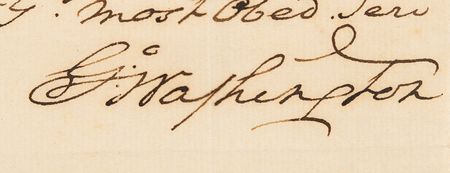 Y. Most Obed. Serv
Go: Washington